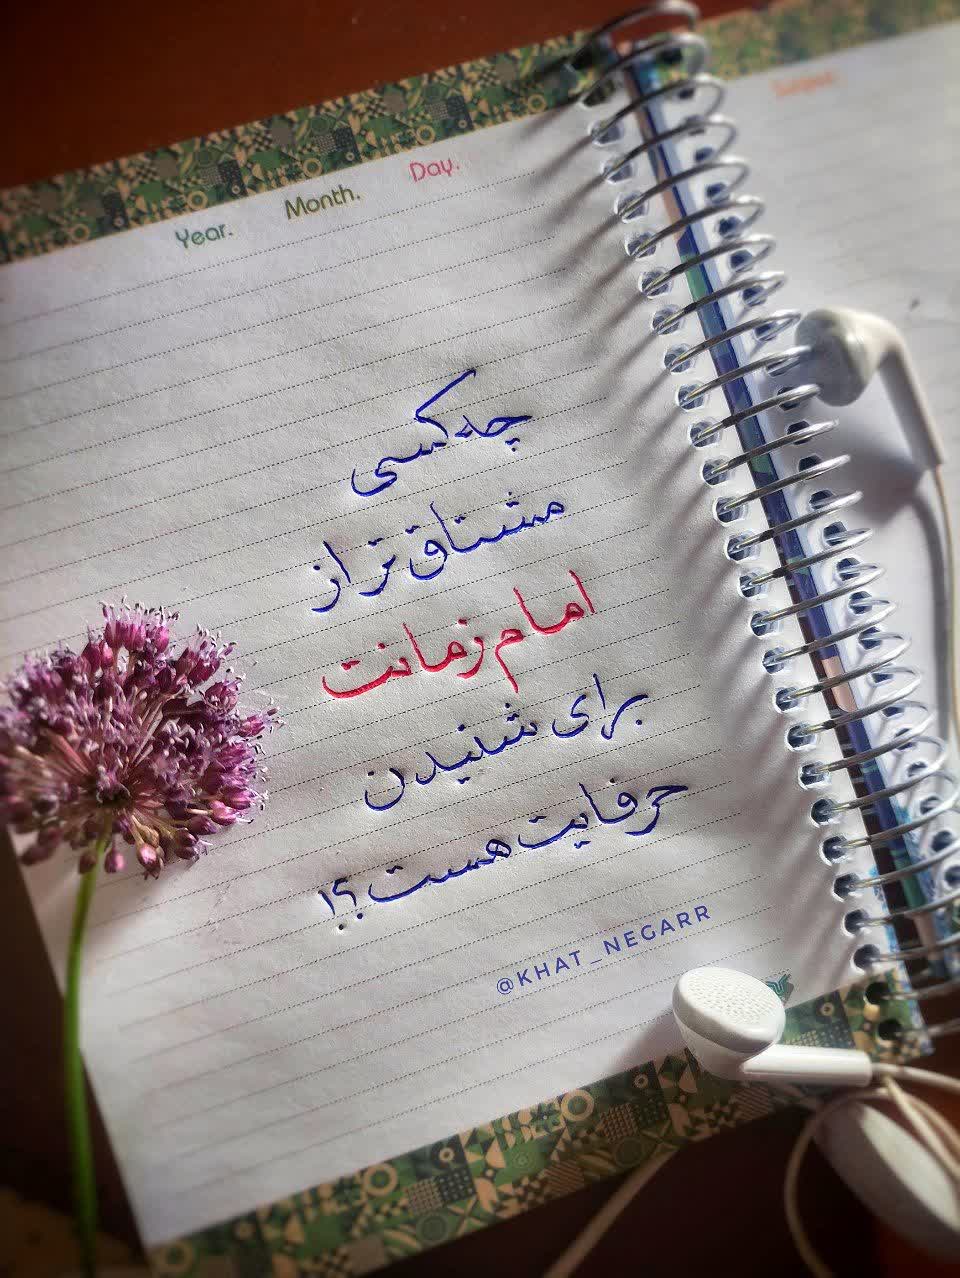 Year. Month. Day.
چه کسی
مشتاق تر از
امام زمانت
برای شنیدن
حرفایت هست؟!
@KHAT_NEGARR